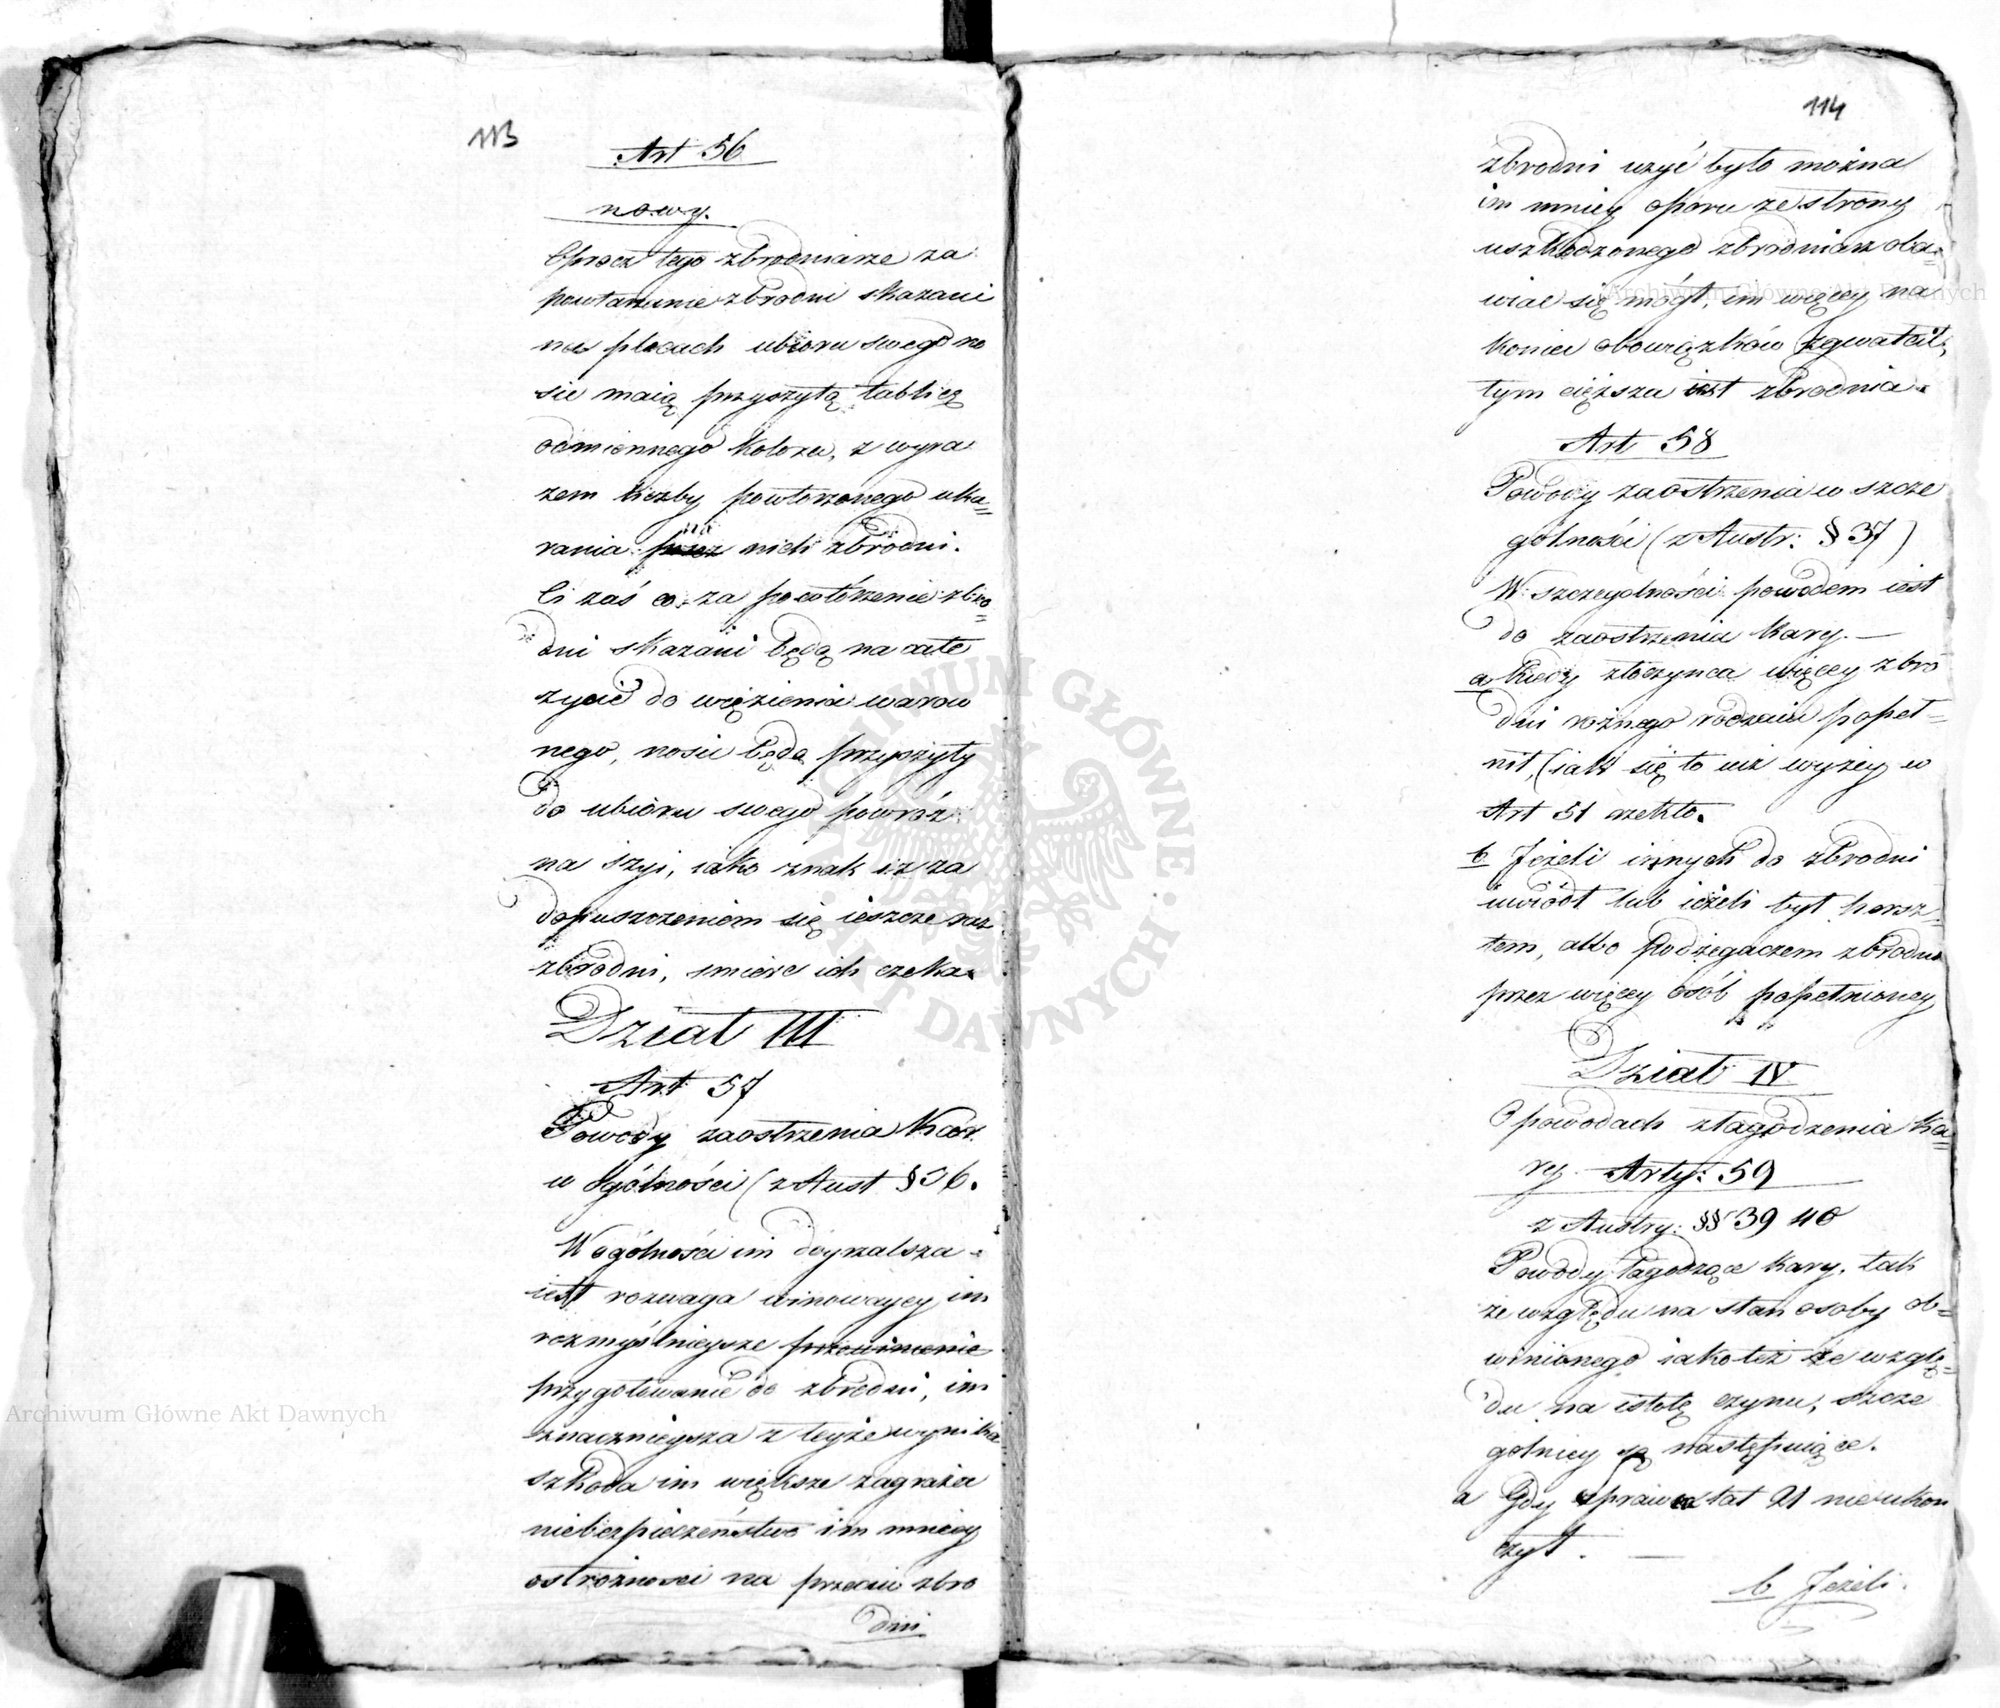 113
Art 56
nowy.
Oprocz tego zbrodniarze za
powtarzanie zbrodni skazani
na plecach ubioru swego no
sić maią przyszytą tablicę
odmiennego koloru, z wyra
zem liczby powtorzonego uka=
rania przez na nich zbrodni.
Ci zaś co za powtórzenie zbro=
dni skazani będą na całe
życie do więzienia warow
nego, nosić będą przyszyty
do ubioru swego powróz
na szyi, iako znak iż za
dopuszczeniem się ieszcze raz
zbrodni, smierć ich czeka.
Dział III
Art 57
Powody zaostrzenia kar
w ogólności (z Aust § 36.
W ogólności im doyrzalsza
iest rozwaga winowaycy im
rozmyślnieysze przewinienie
przygotowanie do zbrodni, im
znacznieysza z teyże wynikła
szkoda im większe zagraża
niebezpieczeństwo im mniey
ostrożnosci na przeciw zbro
dni
114
zbrodni użyć było można
im mniey oporu ze strony
uszkodzonego zbrodniarz oba=
wiać się mógł, im więcey na
koniec obowiązków zgwałcił,
tym cięższa iest zbrodnia.
Art 58
Powody zaostrzenia w szcze
gólności (z Austr: § 37)
W szczególności powodem iest
do zaostrzenia kary. —
a Kiedy złoczynca więcey zbro
dni rożnego rodzaiu popeł=
nił, (iak się to iuż wyżey w
Art 51 rzekło.
b Jeżeli innych do zbrodni
uwiódł lub ieżeli był hersz
tem, albo podżegaczem zbrodni
przez więcey osób popełnioney
Dział IV
O powodach złagodzenia ka=
ry. Arty: 59
z Austry: §§ 39 40
Powody łagodzące kary, tak
ze względu na stan osoby ob=
winionego iakoteż ze wzglę=
du na istotę czynu, szcze
golniey są następuiące.
a Gdy sprawca lat 21 nieukon
czył. —
b Jeżeli
Archiwum Główne Akt Dawnych
Archiwum Główne Akt Dawnych
ARCHIWUM GŁÓWNE AKT DAWNYCH